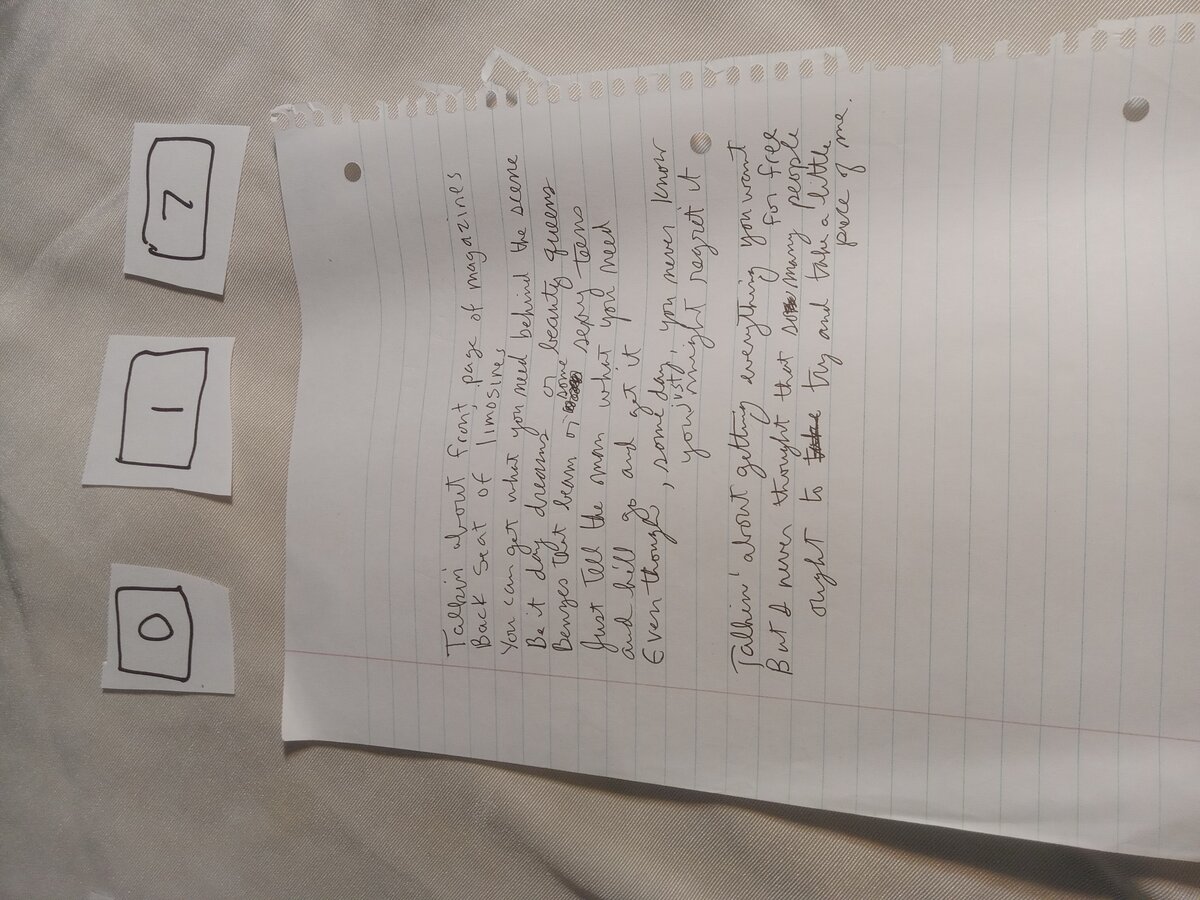 0 1 2
Talkin' about front page of magazines
Back seat of limosines
You can get what you need behind the scene
Be it day dreams or beauty queens
Benzes that beam or some sexy teens
Just tell the man what you need
and he'll go and get it
Even though, some day, you never know
you just might regret it
Talkin' about getting everything you want
But I never thought that so many people for free
ought to try and take a little
piece of me.